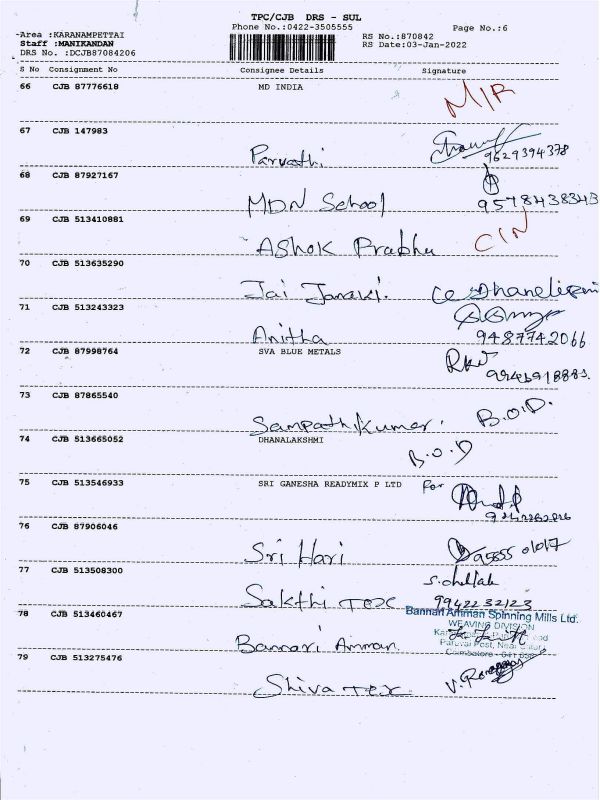 TPC/CJB DRS - SUL
Phone No.:0422-3505555
Page No.:6
-Area :KARANAMPETTAI
Staff :MANIKANDAN
DRS No. :DCJB87084206
RS No.:870842
RS Date:03-Jan-2022
S No Consignment No Consignee Details Signature
66 CJB 87776618 MD INDIA M/R
67 CJB 147983
Parvathi 9629394378
68 CJB 87927167
MDN School 9578438343
69 CJB 513410881
Ashok Prabhu CIN
70 CJB 513635290
Jai Janaki.
71 CJB 513243323
Anitha 9487742066
72 CJB 87998764 SVA BLUE METALS
73 CJB 87865540
Sampathkumar. B.O.D.
74 CJB 513665052 DHANALAKSHMI B.O.D
75 CJB 513546933 SRI GANESHA READYMIX P LTD For
76 CJB 87906046
Sri Hari
77 CJB 513508300
Sakthi Tex 9942232123
78 CJB 513460467 Bannari Amman Spinning Mills Ltd.
WEAVING DIVISION
Bannari Amman.
79 CJB 513275476
Shiva Tex.